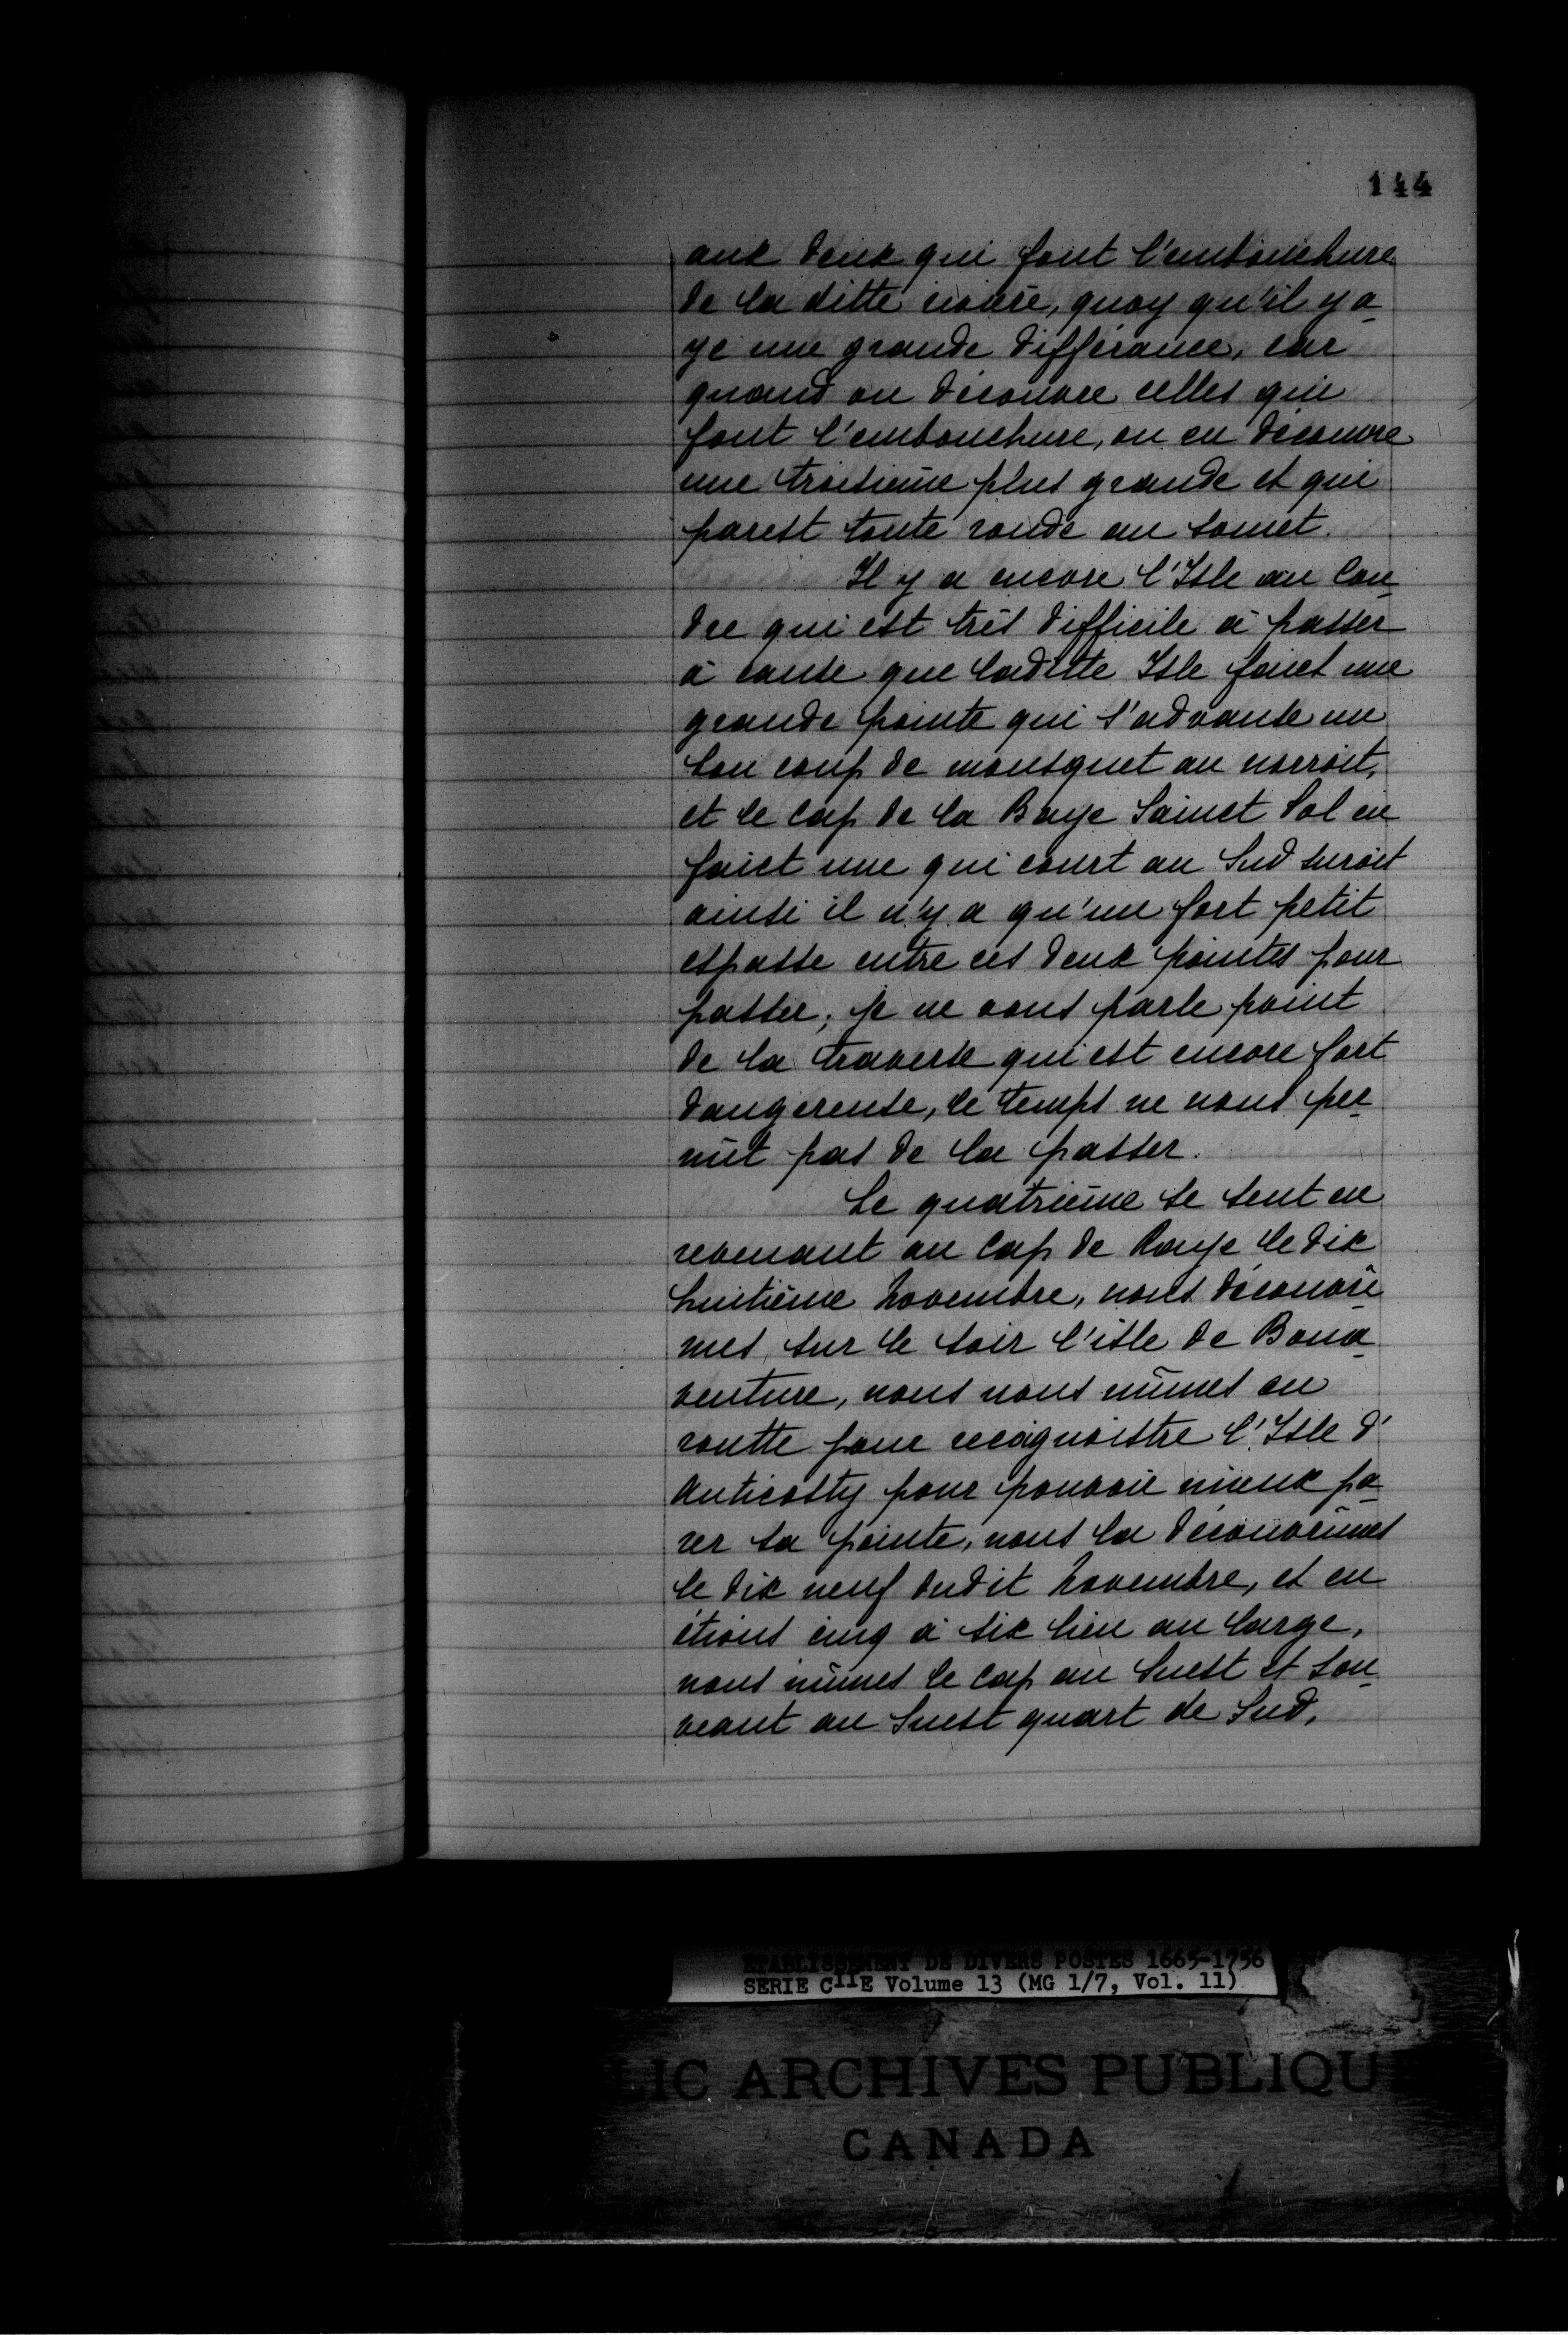 144
aux deux qui font l'embouchure
de la ditte rivière, quoy qu'il y a
ye une grande différance, car
quand on découvre celles qui
font l'embouchure, on en découvre
une troisième plus grande et qui
parest toute ronde au somet.
Il y a encore l'Isle au Cou-
dre qui est très difficile à passer
à cause que laditte Isle faict une
grande pointe qui s'advanse un
bon coup de mousquet au norroit,
et le Cap de la Baye Sainct Pol en
faict une qui court au Sud suroit
ainsi il n'y a qu'un fort petit
espasse entre ces deux pointes pour
passer; je ne vous parle point
de la traverse qui est encore fort
dangereuse, le temps ne nous per-
mit pas de la passer.
Le quatrième se sent en
revenant au Cap de Raye le dix
huitième Novembre, nous découvrî-
mes, sur le soir l'isle de Bona-
venture, nous nous mîmes en
routte pour recognoistre l'Isle d'
Anticosty pour pouvoir mieux pa-
rer sa pointe, nous la découvrîmes
le dix neuf dudit Novembre, et en
étions cinq à six lieu au large,
nous mîmes le cap au Suest et sou-
veant au Suest quart de Sud,
ETABLISSEMENT DE DIVERS POSTES 1665-1756
SERIE CIIE Volume 13 (MG 1/7, Vol. 11)
LIC ARCHIVES PUBLIQU
CANADA